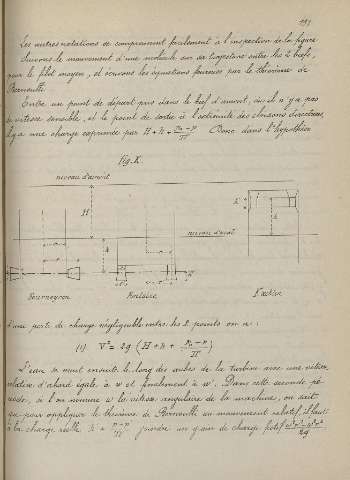 151
Les autres notations se comprennent facilement à l'inspection de la figure
Suivons le mouvement d'une molécule sur sa trajectoire entre les 2 biefs,
pour le filet moyen, et écrivons les équations fournies par le théorème de
Bernouilli.
Entre un point de départ pris dans le bief d'amont, où il n'y a pas
de vitesse sensible, et le point de sortie à l'extrémité des cloisons directrices,
il y a une charge exprimée par H + h + (p₀ - p)/Π. Donc dans l'hypothèse
fig. K.
niveau d'amont
H
niveau d'aval
h
h
Fourneyron
Fontaine
d'une perte de charge négligeable entre les 2 points on a :
(1) V² = 2g (H + h + (p₀ - p)/Π)
L'eau se meut ensuite le long des aubes de la turbine avec une vitesse
relative d'abord égale à w et finalement à w'. Dans cette seconde période,
si l'on nomme ω la vitesse angulaire de la machine, on sait
que pour appliquer le théorème de Bernouilli au mouvement relatif, il faut
à la charge réelle joindre un gain de charge fictif